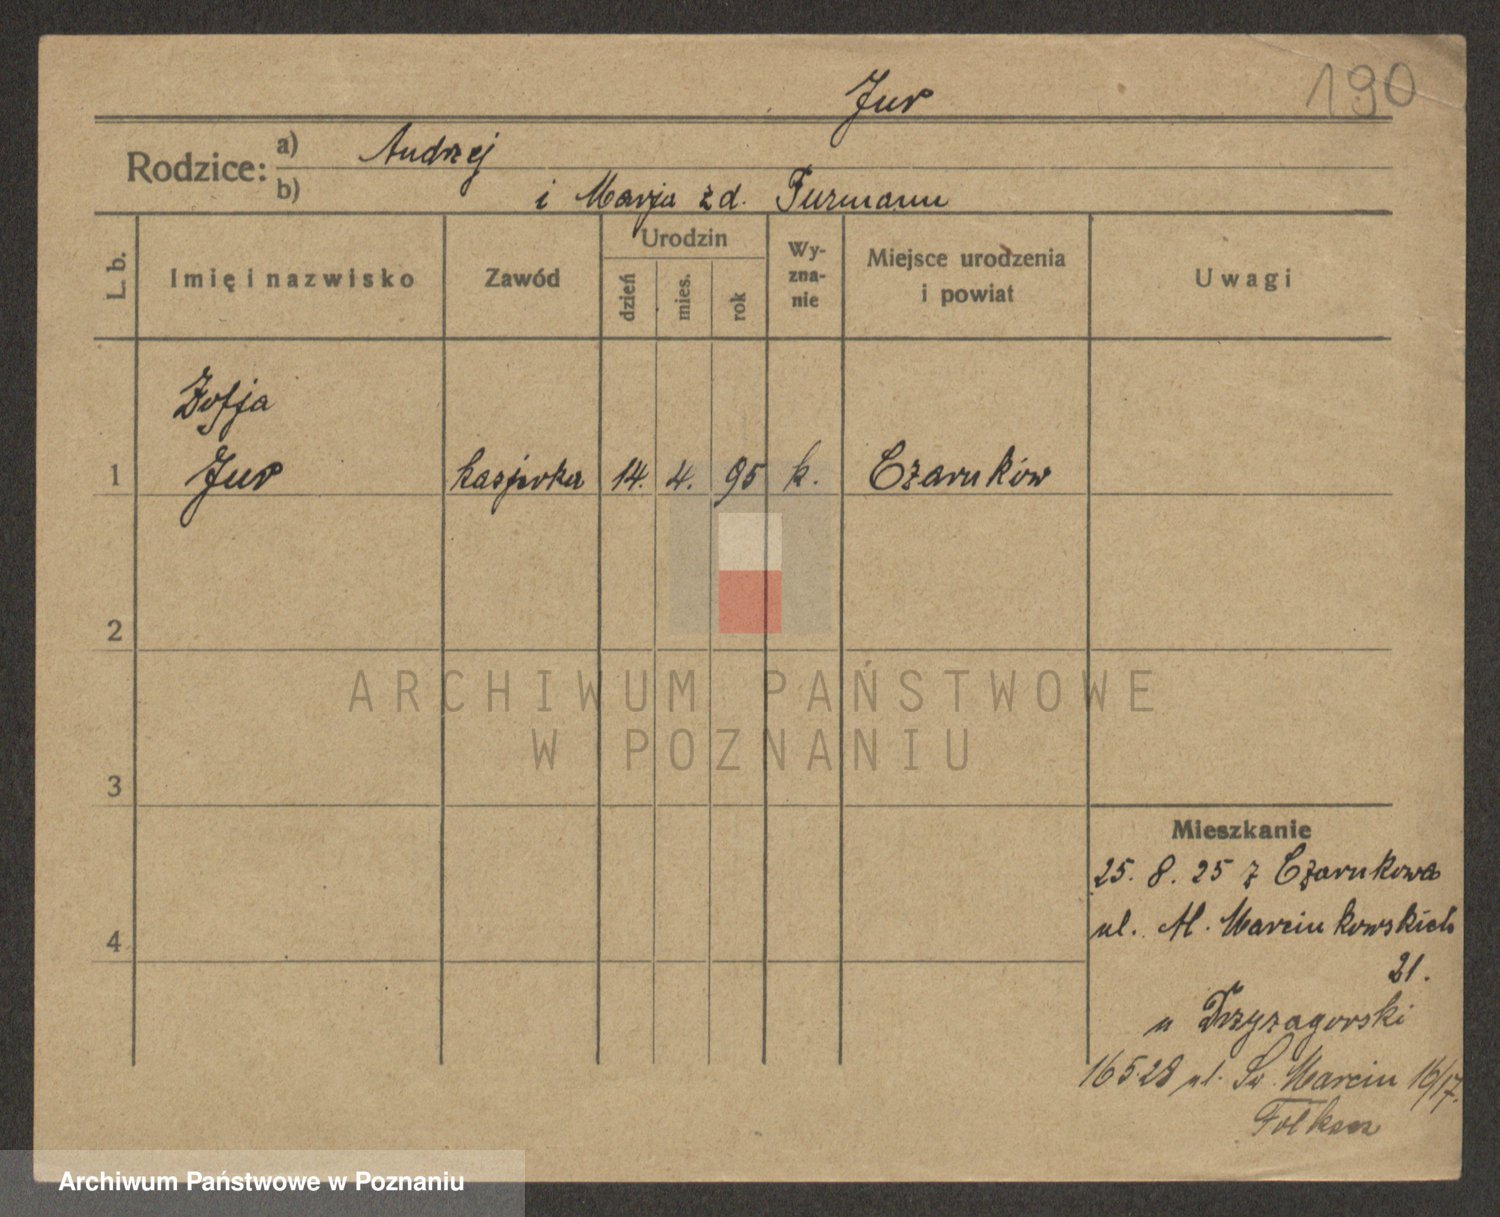 190
Jur
Rodzice: a) Andrzej
b) i Marja zd. Furmann
L. b.
Imię i nazwisko
Zawód
Urodzin
dzień
mies.
rok
Wy-
zna-
nie
Miejsce urodzenia
i powiat
Uwagi
Zofja
1 Jur kasjerka 14. 4. 95 k. Czarnków
2
3
4
Mieszkanie
25. 8. 25 z Czarnkowa
ul. Al. Marcinkowskich
21.
u
16 5 28 ul. Św. Marcin 16/17.
ARCHIWUM PAŃSTWOWE
W POZNANIU
Archiwum Państwowe w Poznaniu